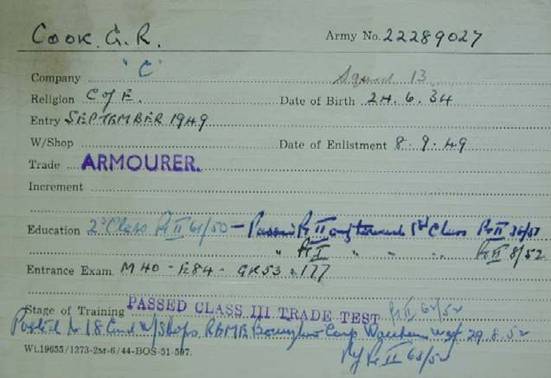 COOK. G. R. Army No. 22289027
Company "C" Squad 13
Religion C of E. Date of Birth 24. 6. 34
Entry SEPTEMBER 1949
W/Shop Date of Enlistment 8. 9. 49
Trade ARMOURER.
Increment
Education 2nd Class Pt II 61/50 - Passed Pt II towards 1st Class Pt II 36/51
" Pt I " " .. Pt II 8/52
Entrance Exam. M40 - E84 - GK53 = 177
Stage of Training PASSED CLASS III TRADE TEST Pt II 62/52
Posted to 18 Cmd W/Shops REME Camp Wareham wef 29.8.52
Pt II 65/52
Wt.19655/1273-2M-6/44-BOS-51-507.